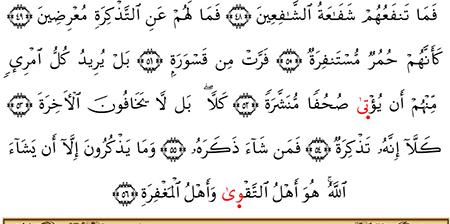 فَمَا تَنفَعُهُمْ شَفَـٰعَةُ ٱلشَّـٰفِعِينَ ﴿٤٨﴾ فَمَا لَهُمْ عَنِ ٱلتَّذْكِرَةِ مُعْرِضِينَ ﴿٤٩﴾
كَأَنَّهُمْ حُمُرٌ مُّسْتَنفِرَةٌ ﴿٥٠﴾ فَرَّتْ مِن قَسْوَرَةٍۭ ﴿٥١﴾ بَلْ يُرِيدُ كُلُّ ٱمْرِئٍ
مِّنْهُمْ أَن يُؤْتَىٰ صُحُفًا مُّنَشَّرَةً ﴿٥٢﴾ كَلَّا ۖ بَل لَّا يَخَافُونَ ٱلْـَٔاخِرَةَ ﴿٥٣﴾
كَلَّآ إِنَّهُۥ تَذْكِرَةٌ ﴿٥٤﴾ فَمَن شَآءَ ذَكَرَهُۥ ﴿٥٥﴾ وَمَا يَذْكُرُونَ إِلَّآ أَن يَشَآءَ
ٱللَّهُ ۚ هُوَ أَهْلُ ٱلتَّقْوَىٰ وَأَهْلُ ٱلْمَغْفِرَةِ ﴿٥٦﴾